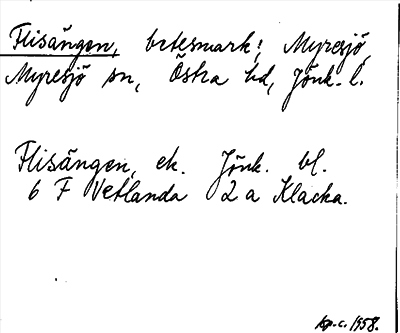 Flisängen, betesmark, Myresjö,
Myresjö sn, Östra hd, Jönk. l.
Flisängen, ek. Jönk. bl.
6 F Vetlanda 2 a Klacka.
kp.c. 1958.